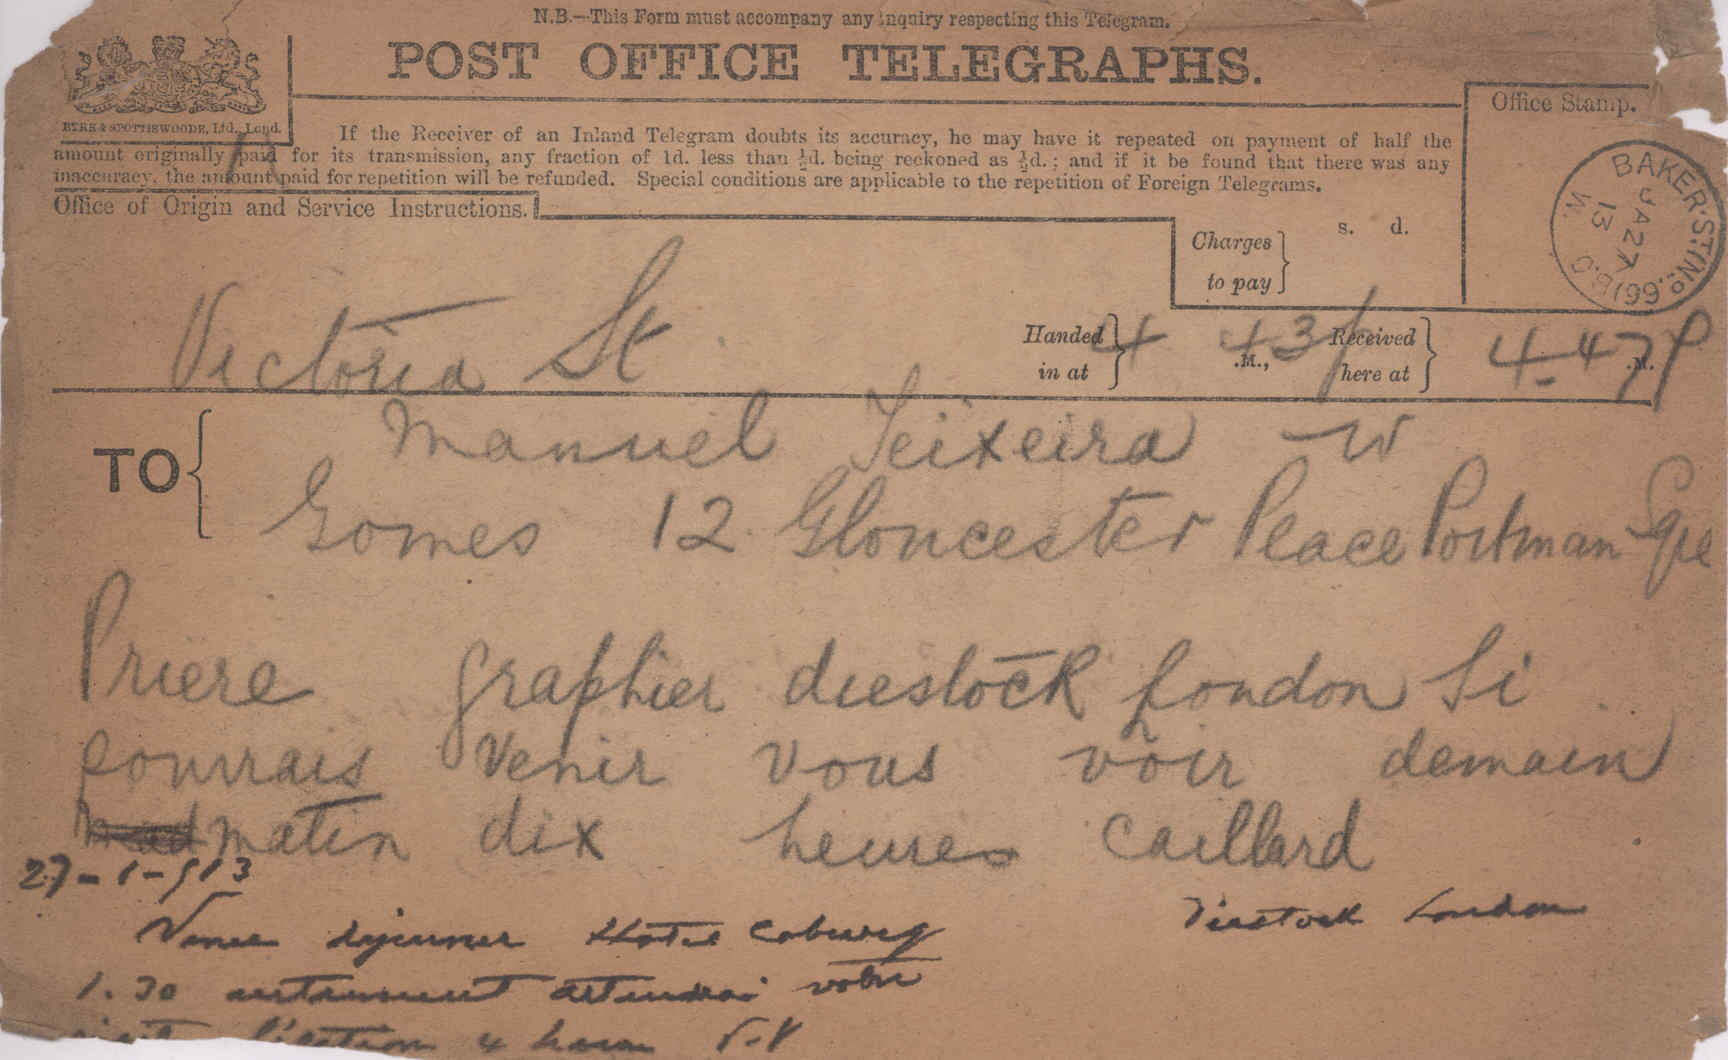 N.B.—This Form must accompany any inquiry respecting this Telegram.
POST OFFICE TELEGRAPHS.
EYRE & SPOTTISWOODE, Ltd., Lond.
Office Stamp.
If the Receiver of an Inland Telegram doubts its accuracy, he may have it repeated on payment of half the
amount originally paid for its transmission, any fraction of 1d. less than ½d. being reckoned as ½d.; and if it be found that there was any
inaccuracy, the amount paid for repetition will be refunded. Special conditions are applicable to the repetition of Foreign Telegrams.
BAKER·ST.(No.66)B.O W.
JA 27
13
Office of Origin and Service Instructions.
s. d.
Charges
to pay
Victoria St
Handed
in at
4 43p
.M.,
Received
here at
4-47p
.M.
TO
Manuel Teixeira
Gomes 12 Gloucester Place Portman Sqre
Priere graphier diestock London Si
pourrais venir vous voir demain
matin dix heures Caillard
27-1-913
Diestock London
Venez déjeuner Hotel Coburg
1.30 autrement attendrai votre
4